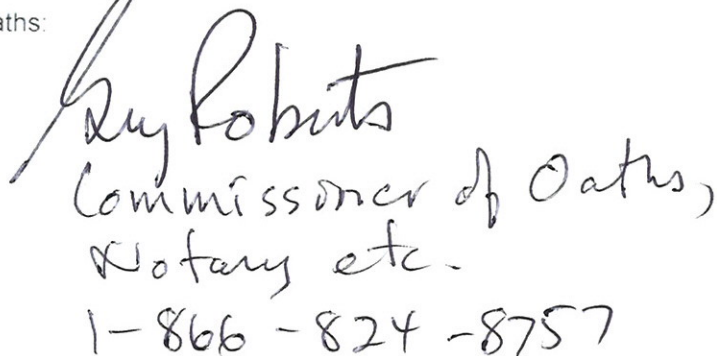 aths:
Guy Roberts
Commissioner of Oaths,
Notary etc.
1-866-824-8757